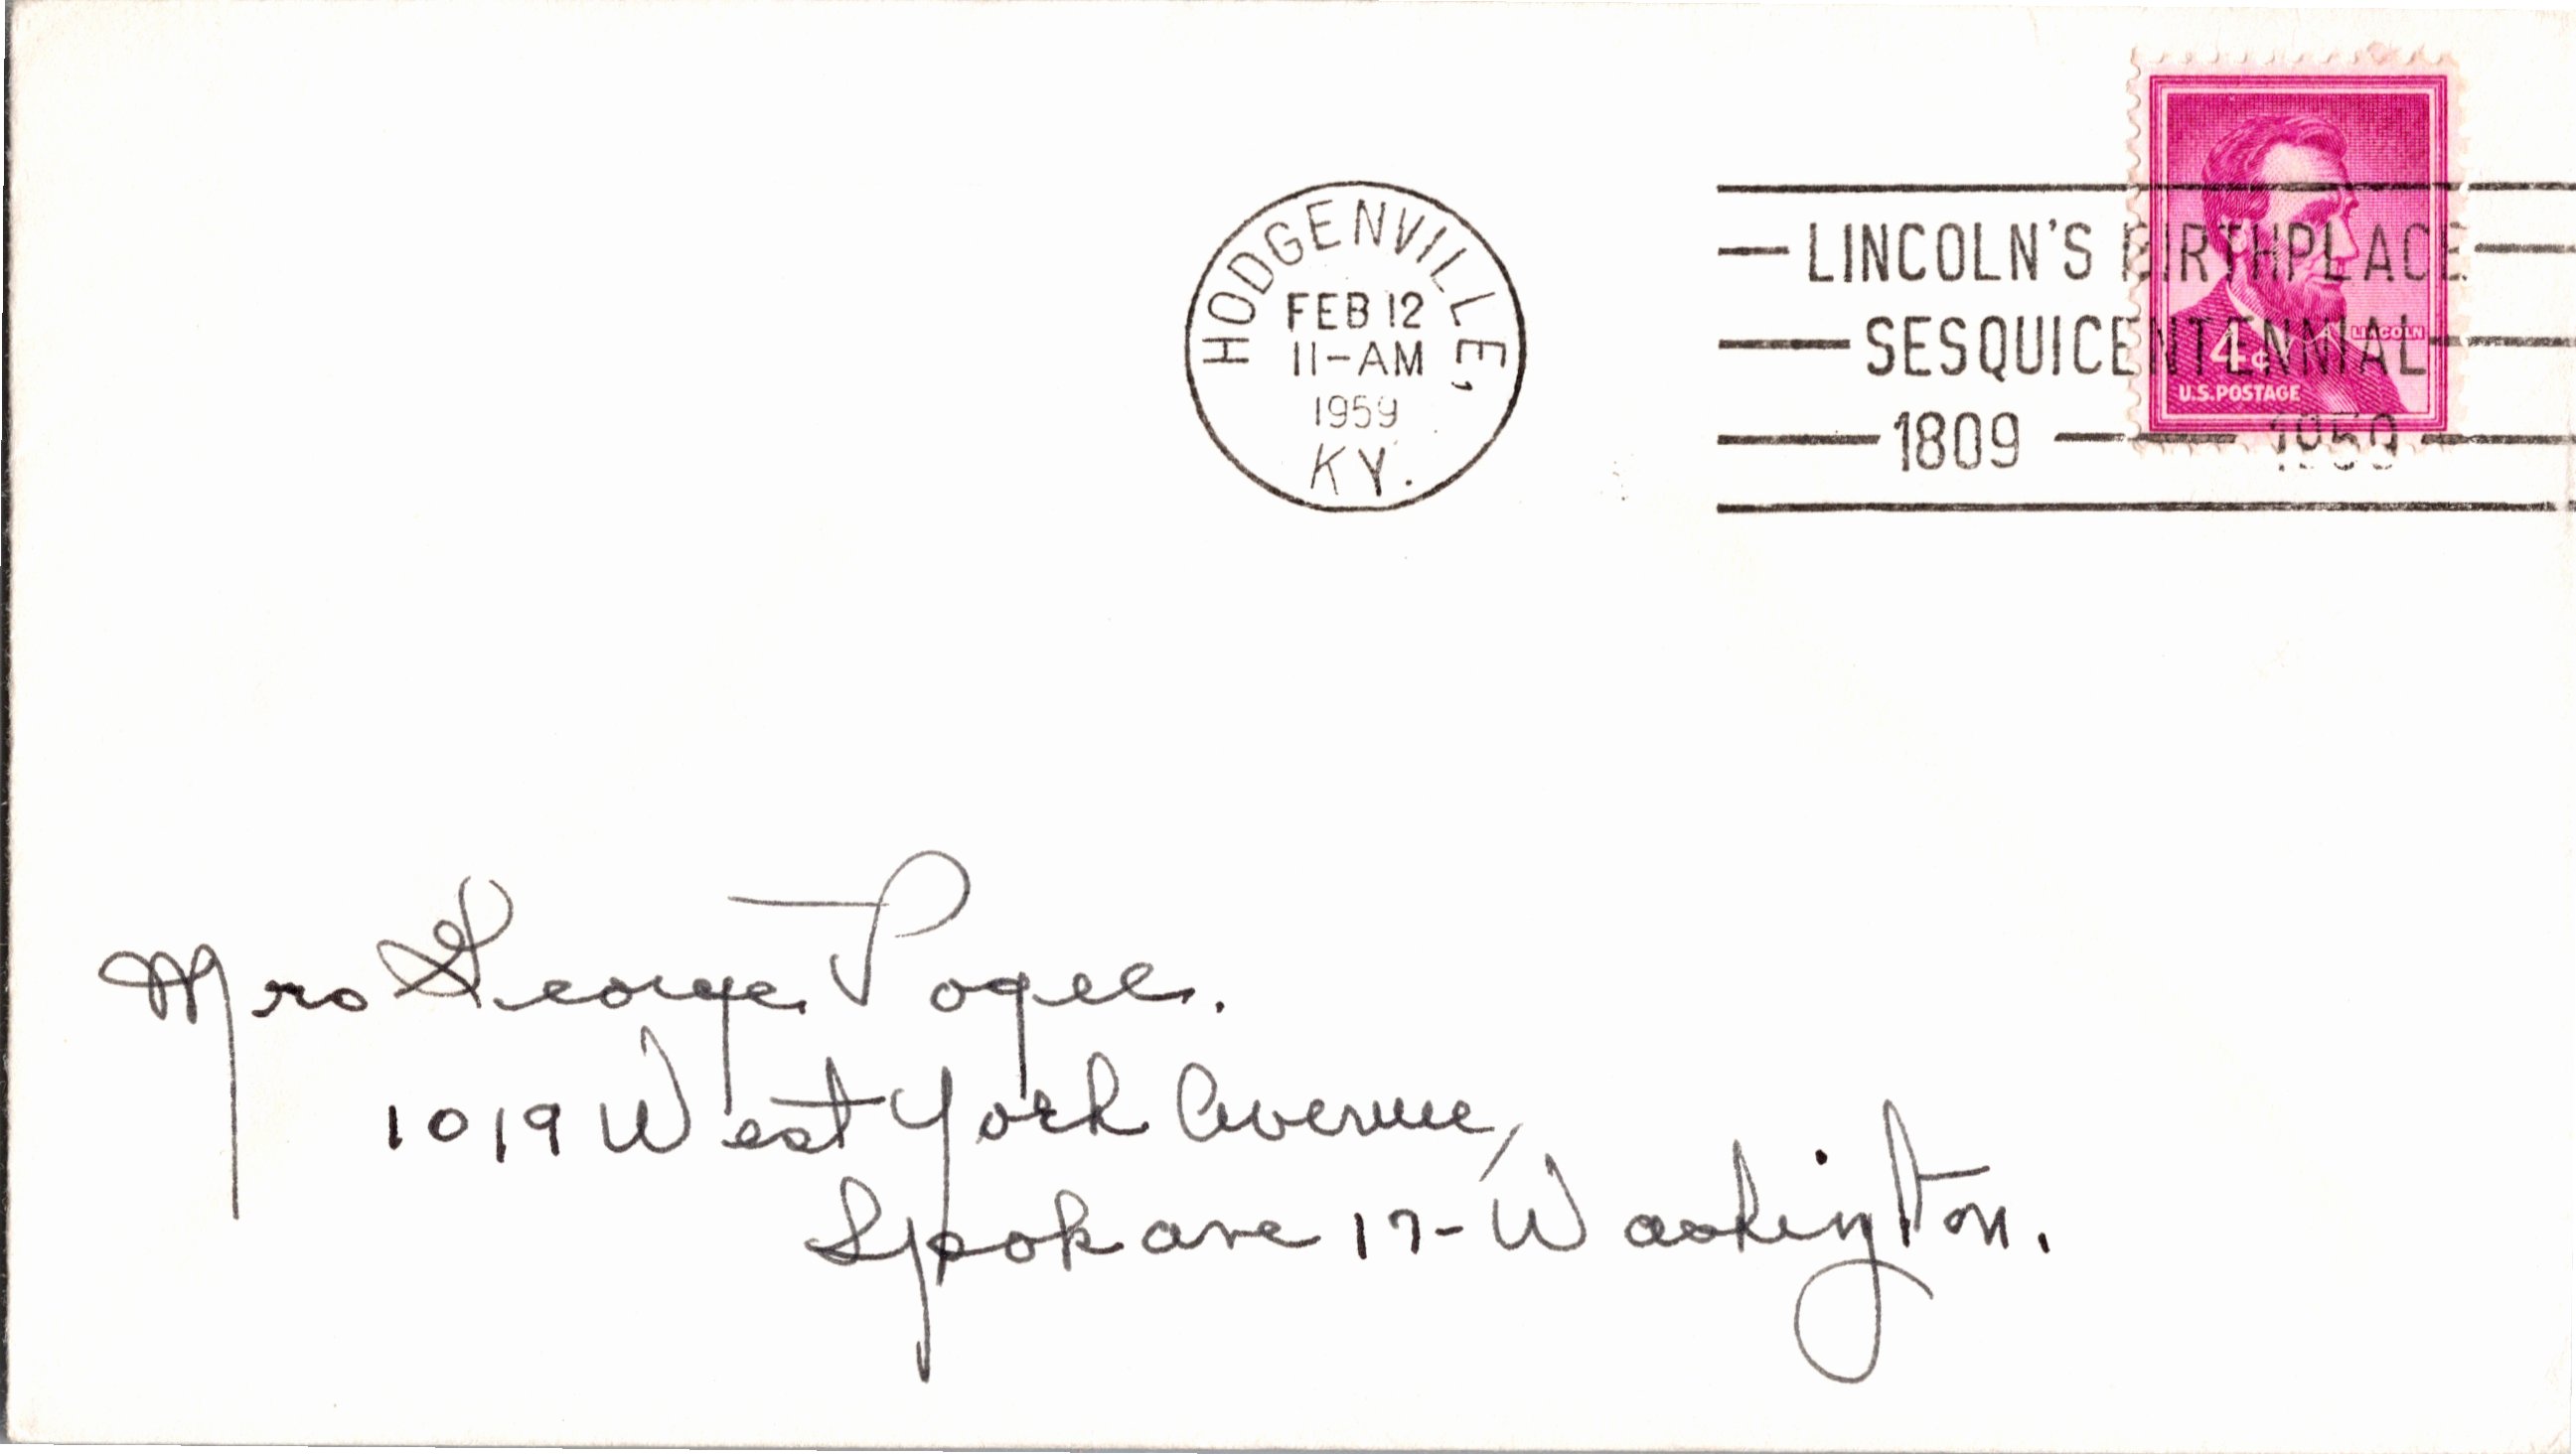 HODGENVILLE,
FEB 12
11-AM
1959
KY.
LINCOLN'S BIRTHPLACE
SESQUICENTENNIAL
1809 — 1959
LINCOLN
4¢
U.S. POSTAGE
Mrs George
1019 West York Avenue,
Spokane 17- Washington.